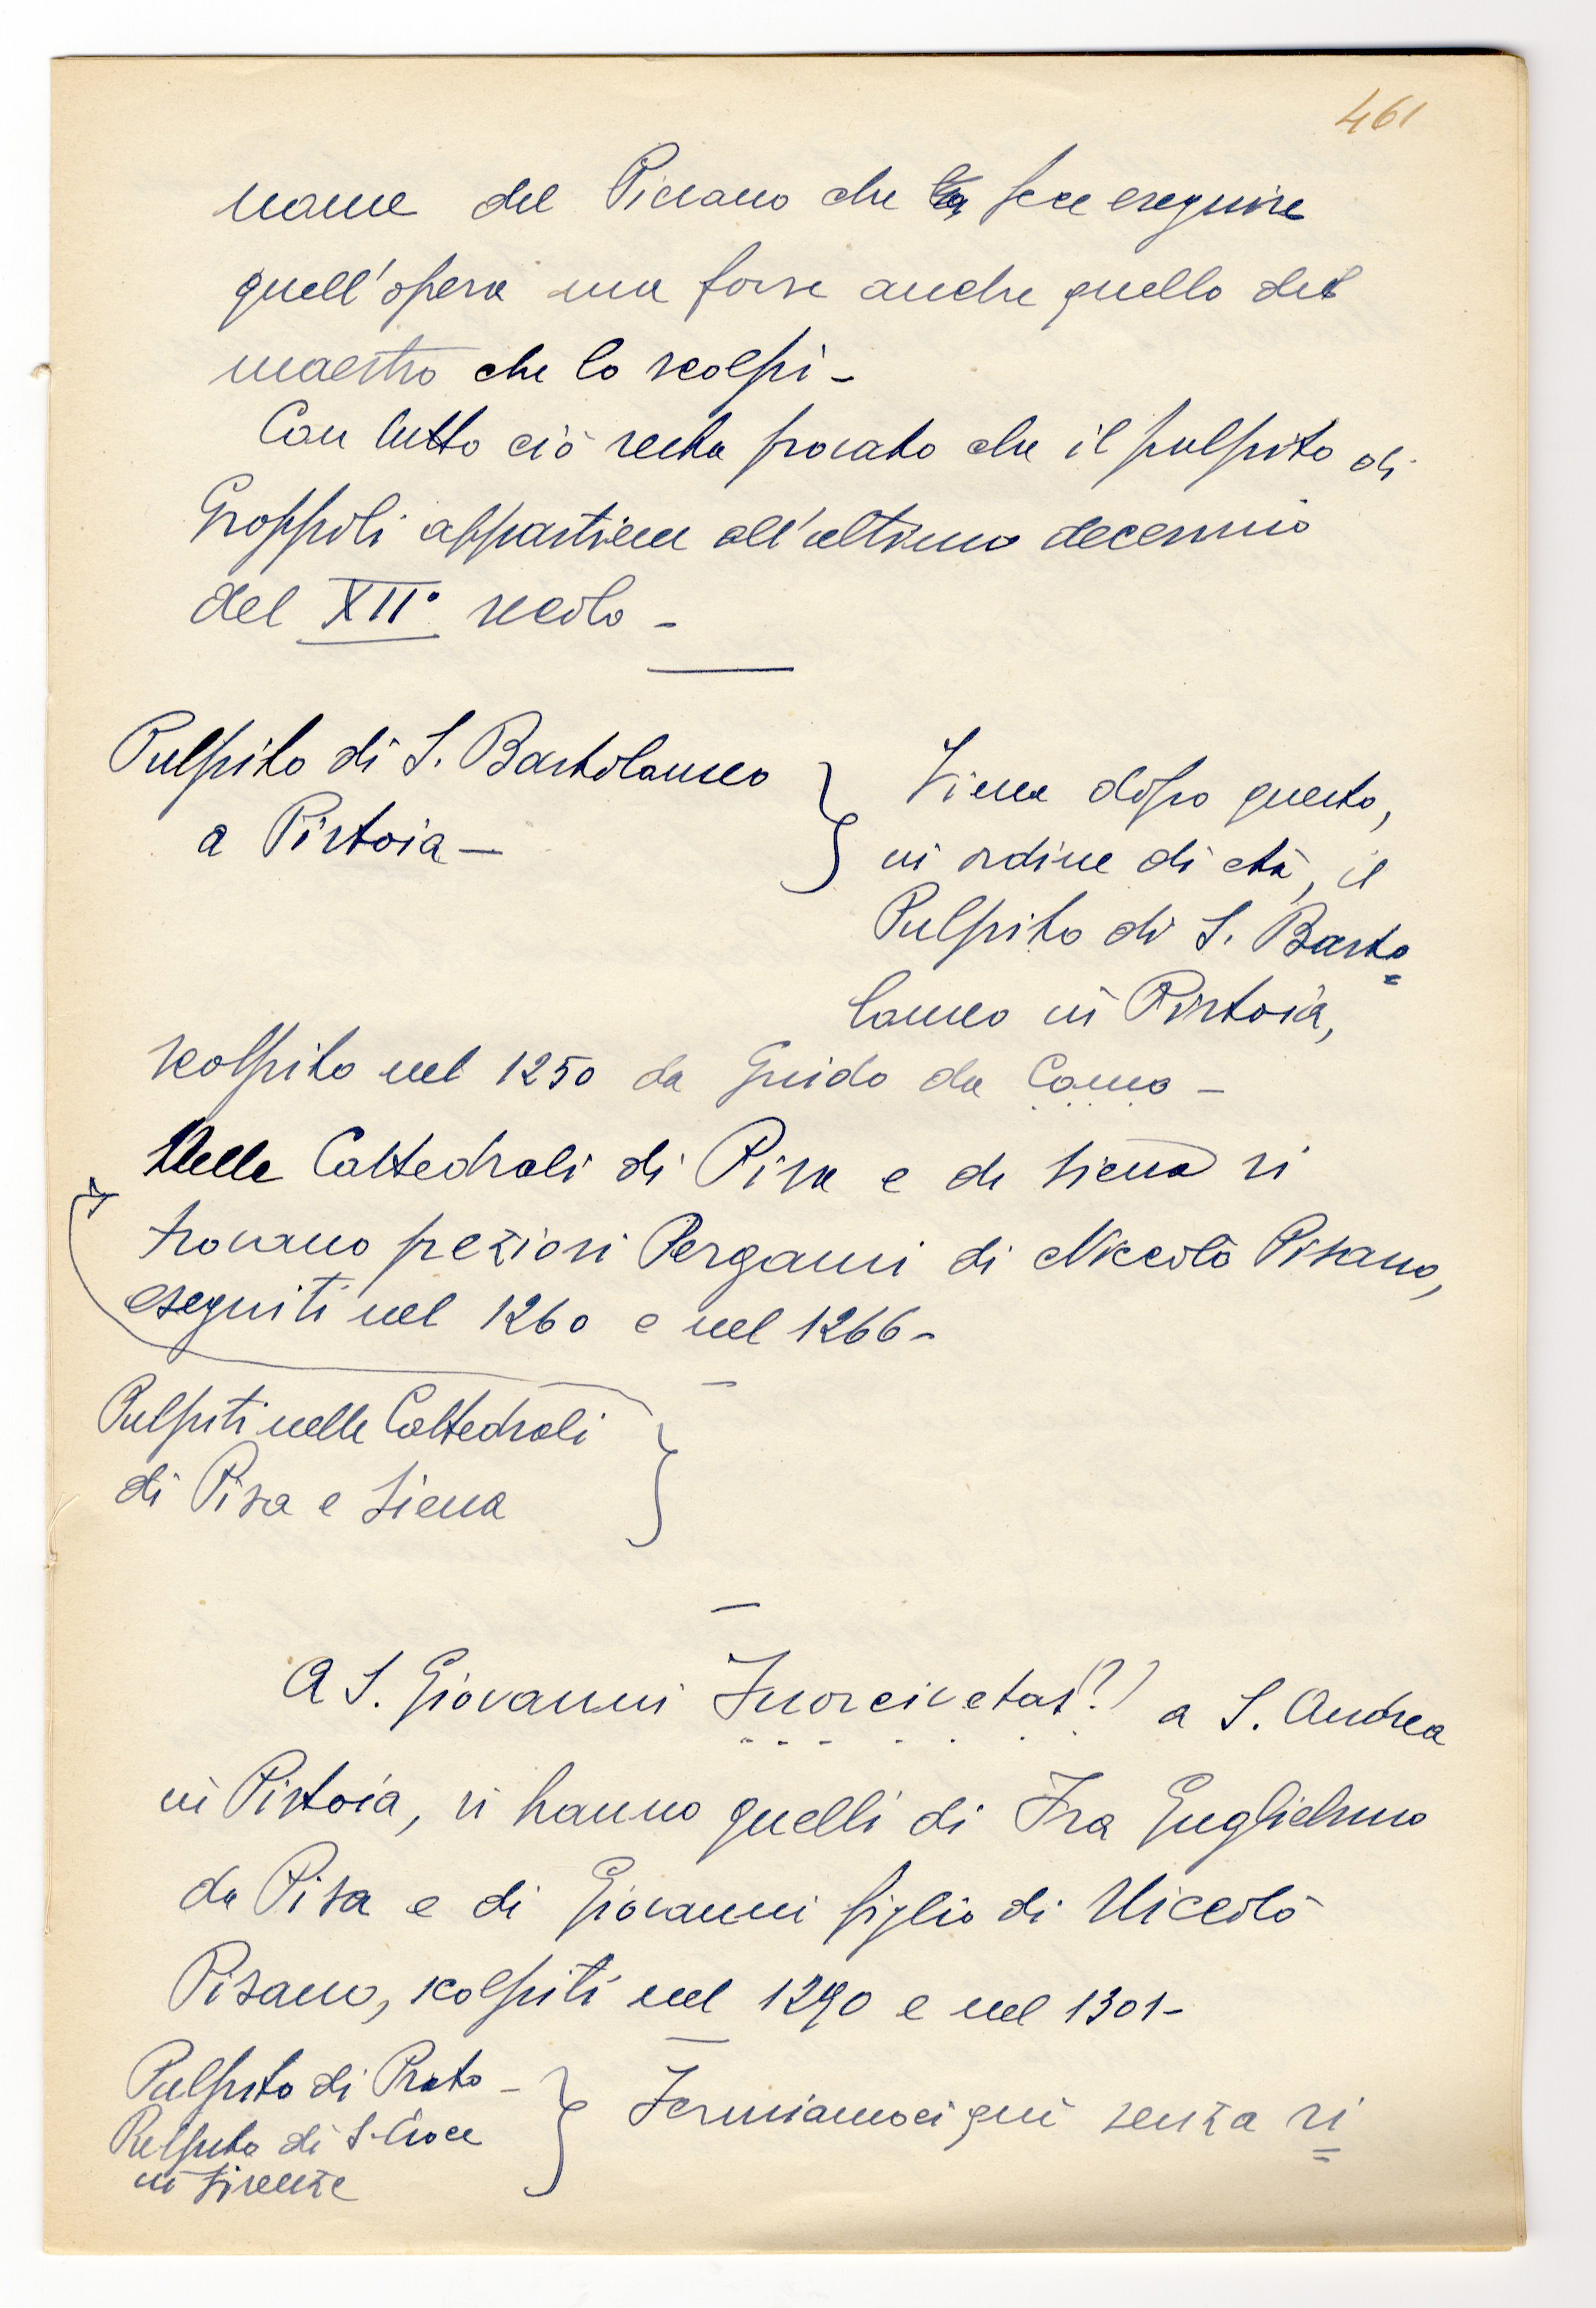 461
nome del Pievano che fece eseguire
quell'opera ma forse anche quello del
maestro che lo scolpì -
Con tutto ciò resta provato che il pulpito di
Groppoli appartiene all'ultimo decennio
del XII° secolo -
Pulpito di S. Bartolameo
a Pistoia -
Viene dopo questo,
in ordine di età, il
Pulpito di S. Barto=
lameo in Pistoia,
scolpito nel 1250 da Guido da Como -
Nelle Cattedrali di Pisa e di Siena si
trovano preziosi Pergami di Niccolò Pisano,
eseguiti nel 1260 e nel 1266 -
Pulpiti nelle Cattedrali
di Pisa e Siena
A S. Giovanni Fuorcivetas(?) a S. Andrea
in Pistoia, si hanno quelli di Fra Guglielmo
da Pisa e di Giovanni figlio di Niccolò
Pisano, scolpiti nel 1290 e nel 1301 -
Pulpito di Prato -
Pulpito di S. Croce
in Firenze
Fermiamoci qui senza ri=